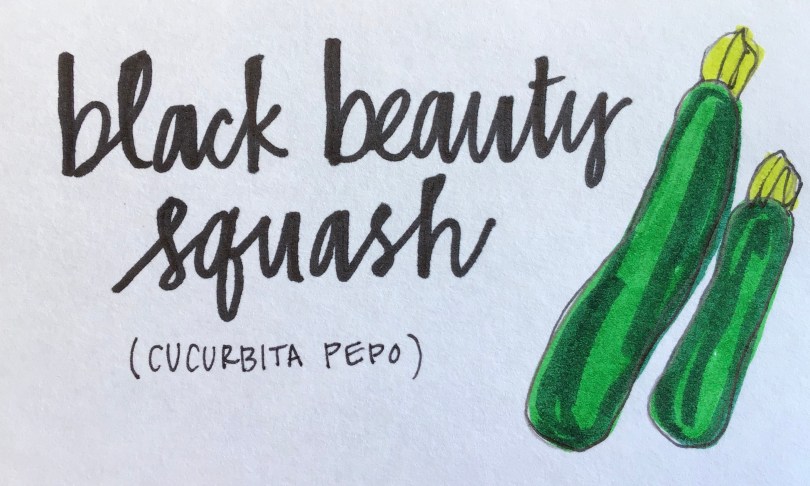 black beauty
squash
(CUCURBITA PEPO)